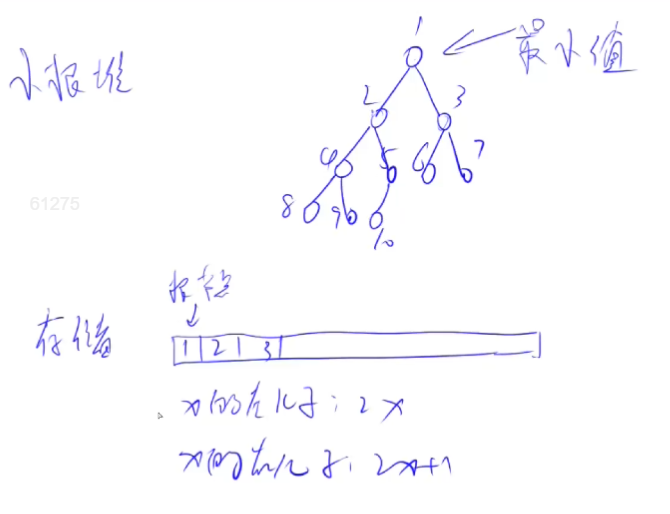 小根堆
最小值
1
2 3
4 5 6 7
8 9 10
61275
根节点
存储
1 2 3
x的左儿子: 2x
x的右儿子: 2x+1